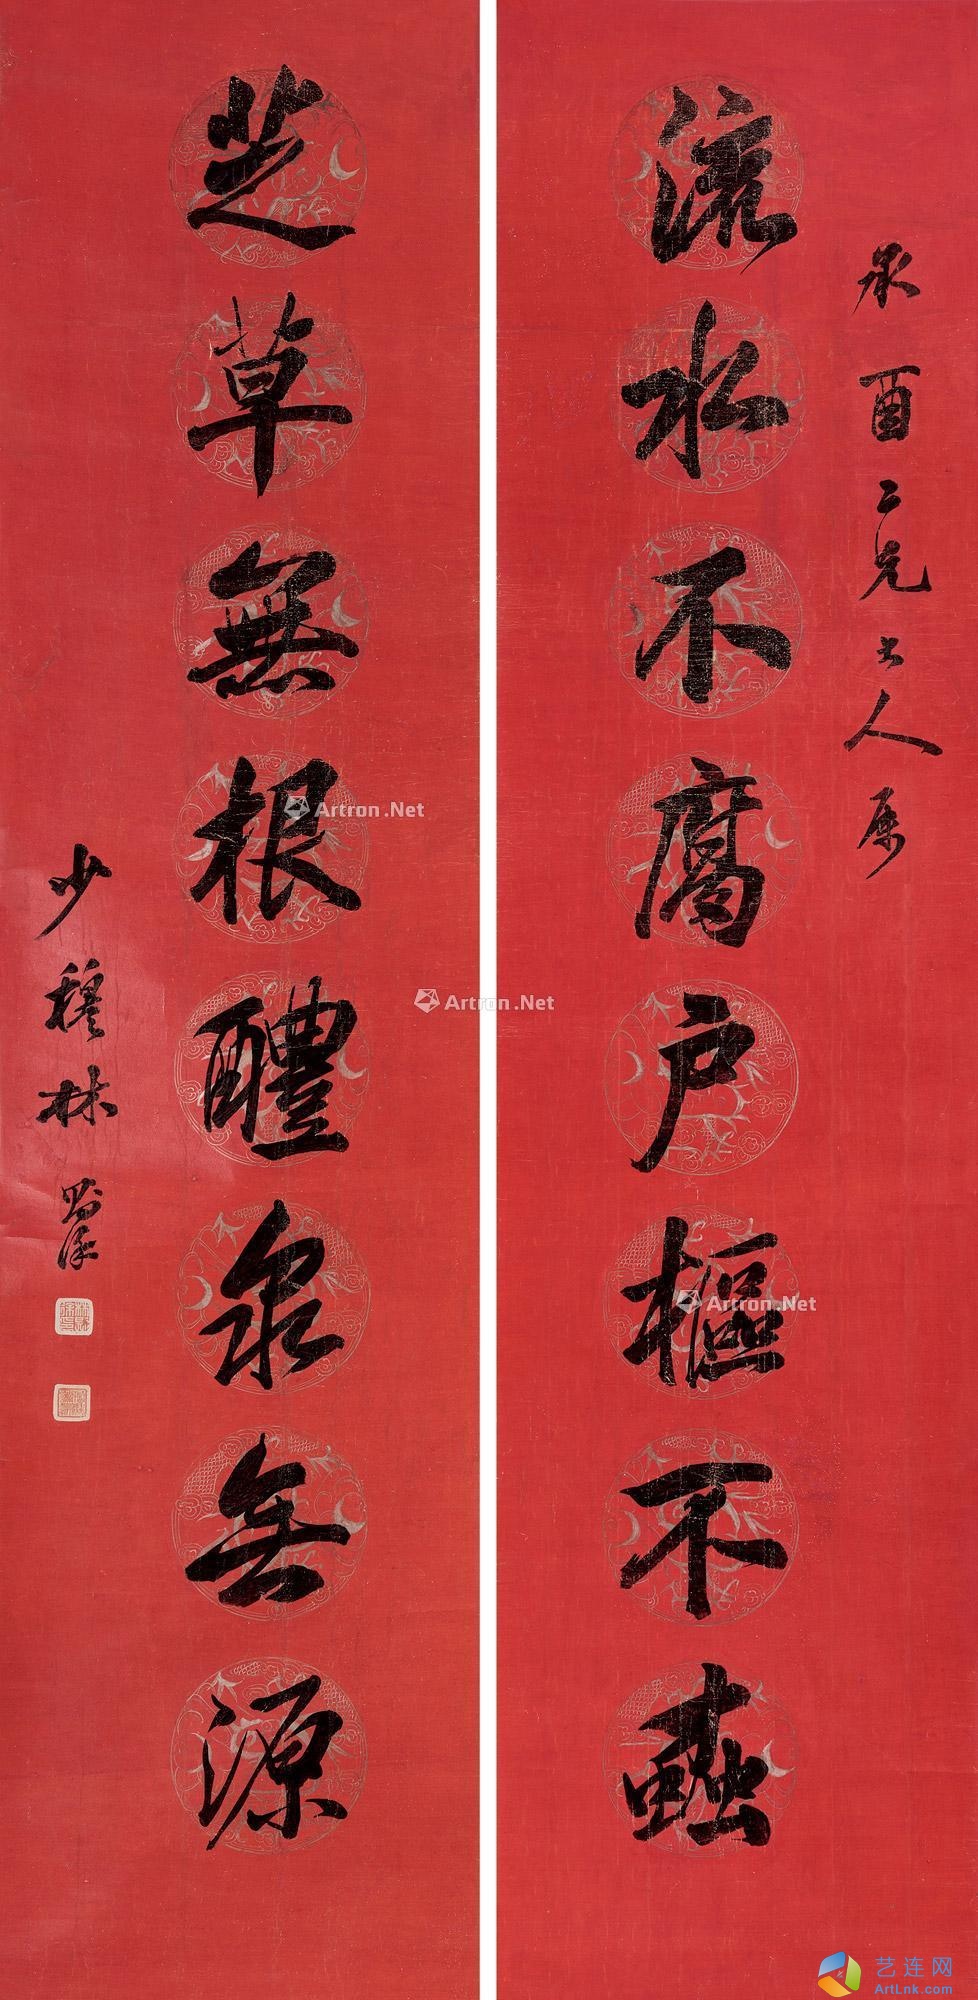 承酉二兄大人属
流水不腐户樞不蠹
芝草無根醴泉無源
少穆林則徐
Artron.Net
Artron.Net
Artron.Net
艺连网
ArtLnk.com